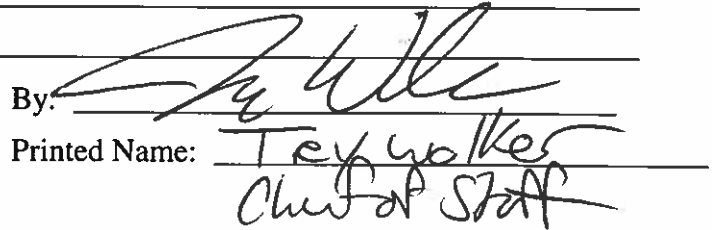 By:
Printed Name: Trey Walker
Chief of Staff